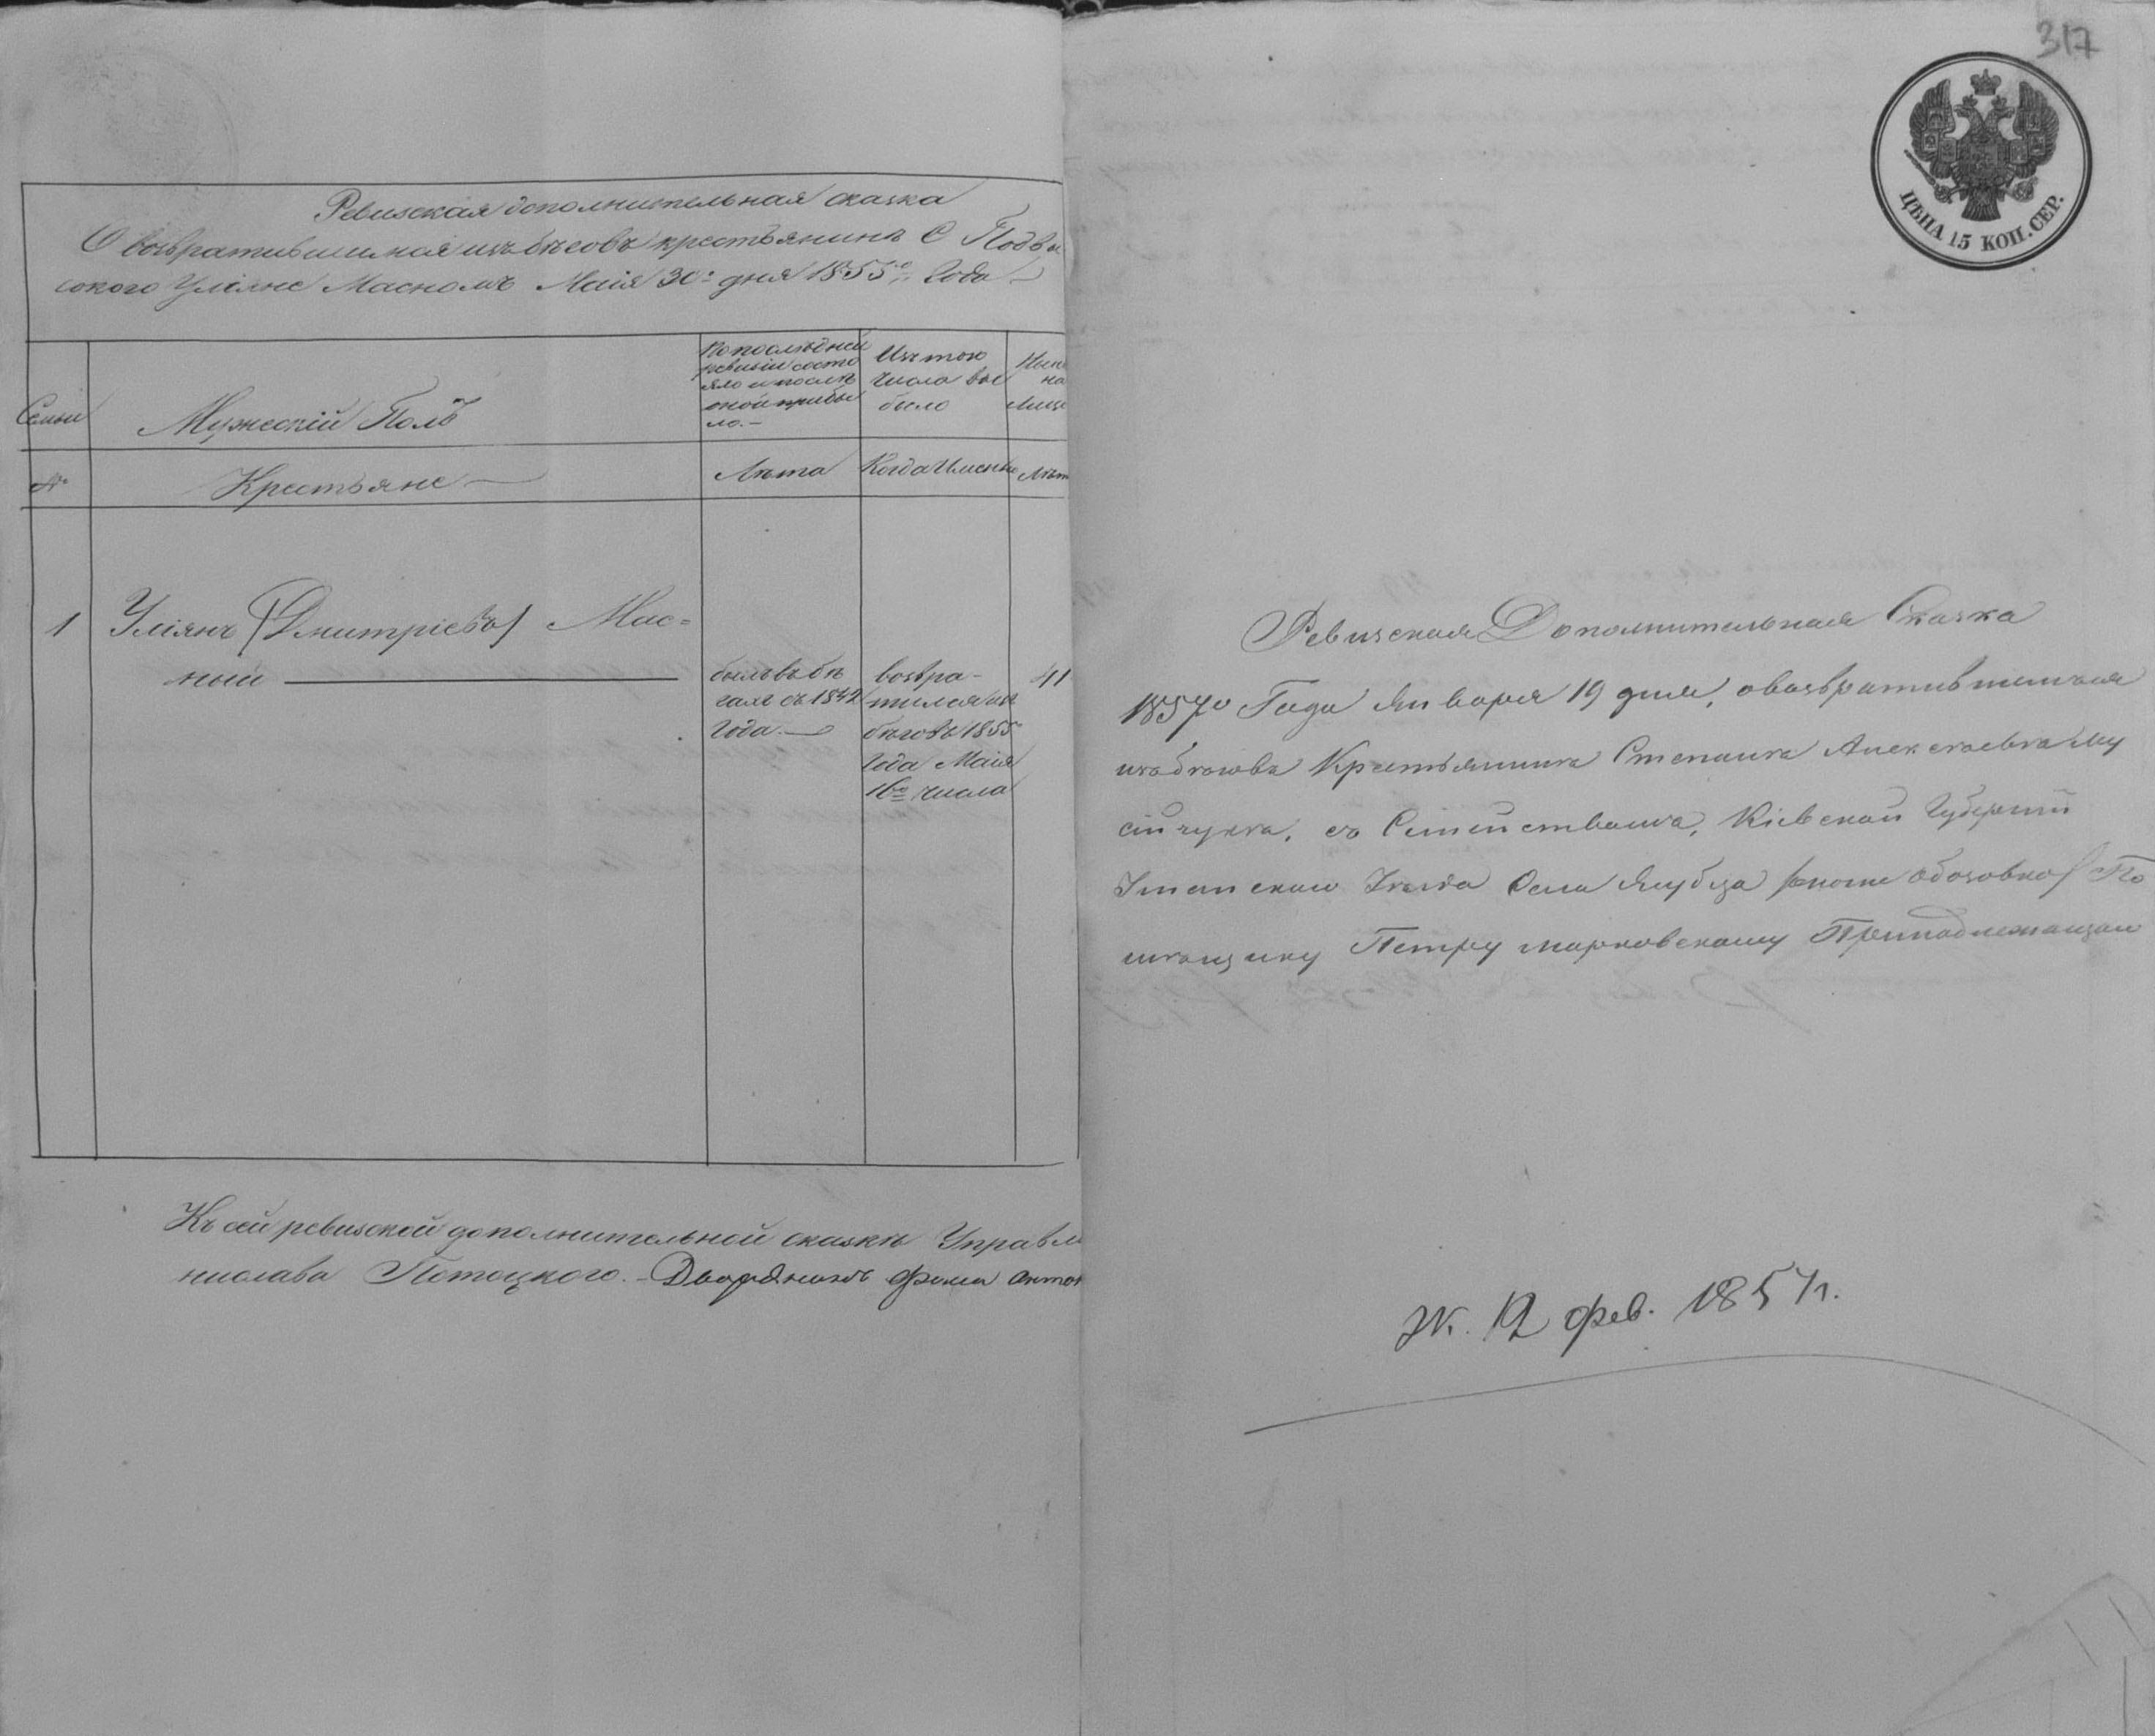 Ревизская дополнительная сказка
О возвратившимся изъ бѣговъ крестьянинѣ С Подвы
сокого Уліяне Масномъ Маія 30: дня 1855го Года
Семьи
Мужескій Полъ
По последней
ревизіи состо
яло и после
оной прибы
ло.
Изъ того
числа вы
было
Ныне
на
лице
№
Крестьяне
Лѣта
Когда Именно
Лѣт
1
Уліянъ (Дмитріевъ) Мас=
ный
былъ въ бѣ
гахъ съ 1842
Года
возвра-
тился изъ
бѣговъ 1855
Года Маія
16го числа
41
Къ сей ревизской дополнительной сказкѣ Управл
нислава Потоцкого. Дворянинъ Фома Антон
317
ЦѢНА 15 КОП. СЕР.
Ревизская Дополнительная Сказка
1857го Года Января 19 дня, о возвратившемся
изъ бѣговъ Крестьянинѣ Степанѣ Алексѣевѣ Му
сійчукѣ, съ Семействомъ, Кіевской Губерніи
Уманскаго Уѣзда Села Яубца Обозовка По
мѣщику Петру Марковскому Принадлежащаго
Ж. 12 фев. 1857 г.